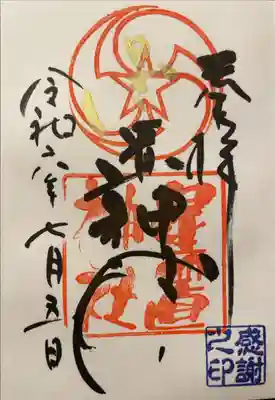 奉拝
神
星宮神社
令和六年七月五日
感謝之印